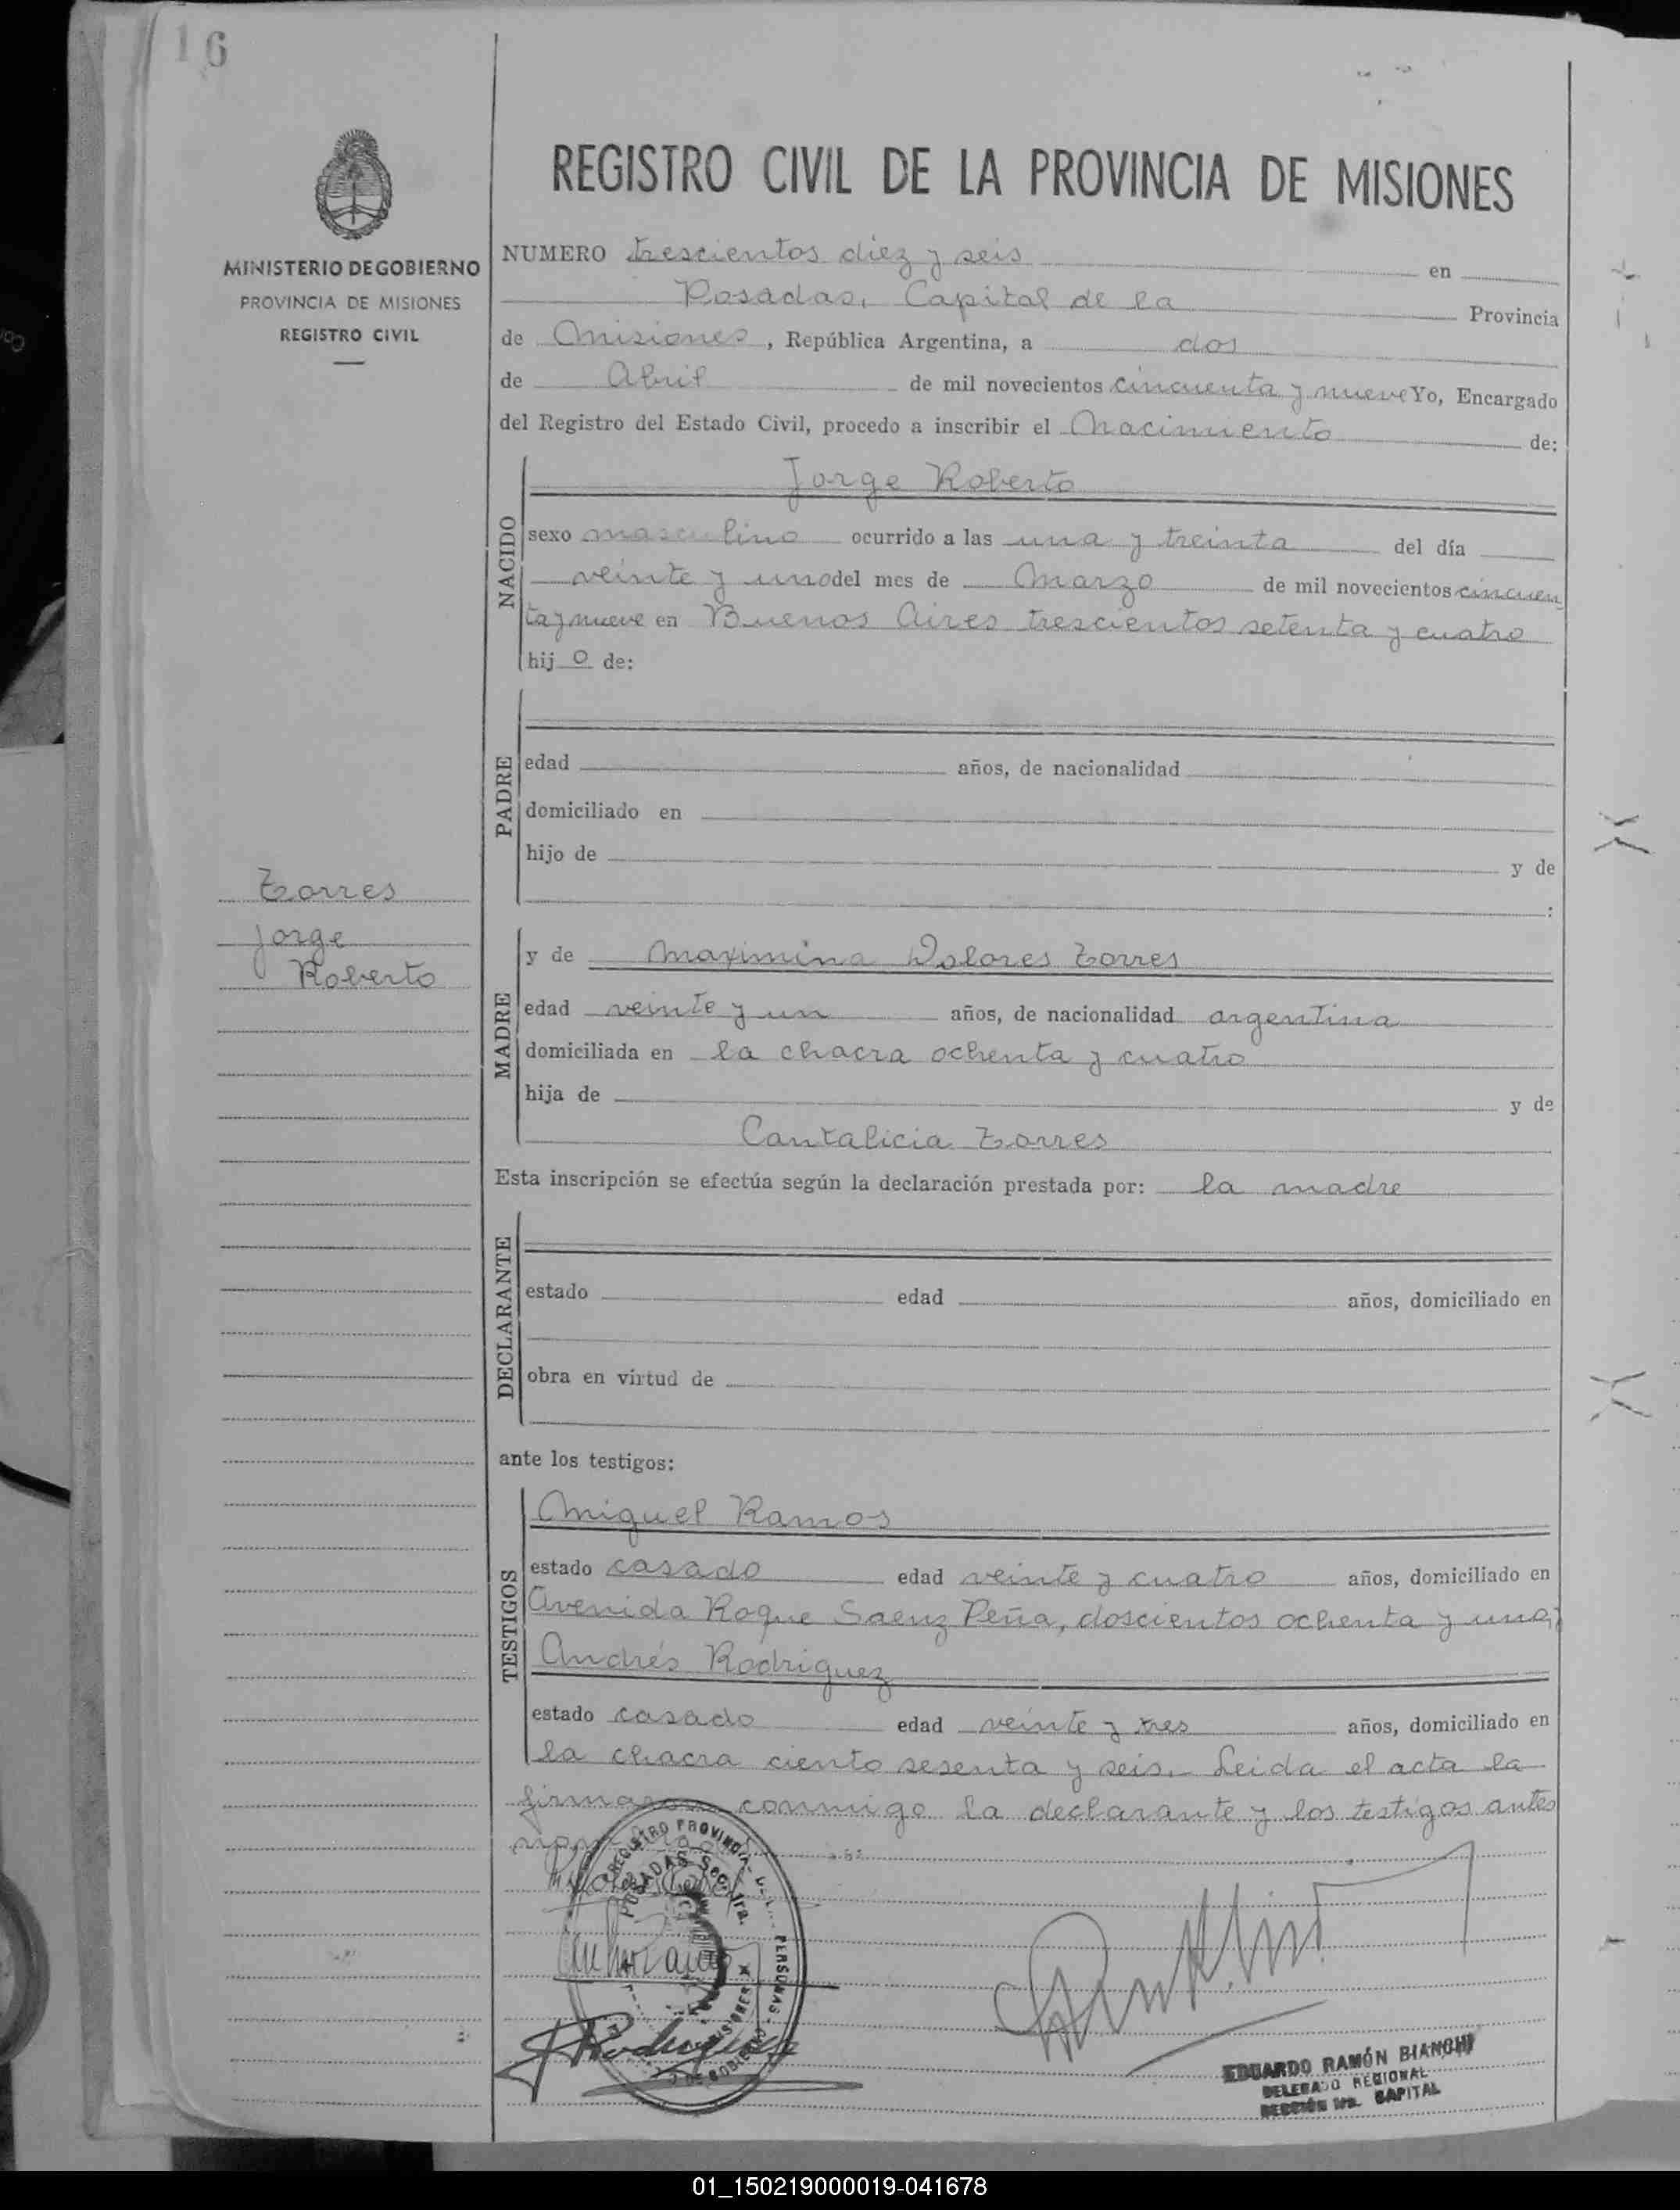 16
MINISTERIO DE GOBIERNO
PROVINCIA DE MISIONES
REGISTRO CIVIL
REGISTRO CIVIL DE LA PROVINCIA DE MISIONES
NUMERO trescientos diez y seis en
Posadas, Capital de la Provincia
de Misiones, República Argentina, a dos
de Abril de mil novecientos cincuenta y nueve Yo, Encargado
del Registro del Estado Civil, procedo a inscribir el Nacimiento de:
NACIDO
Jorge Roberto
sexo masculino ocurrido a las una y treinta del día
veinte y uno del mes de Marzo de mil novecientos cincuen
ta y nueve en Buenos Aires trescientos setenta y cuatro
hijo de:
PADRE
edad años, de nacionalidad
domiciliado en
hijo de y de
:
Torres
Jorge
Roberto
MADRE
y de Maximina Dolores Torres
edad veinte y un años, de nacionalidad argentina
domiciliada en la chacra ochenta y cuatro
hija de y de
Cantalicia Torres
Esta inscripción se efectúa según la declaración prestada por: la madre
DECLARANTE
estado edad años, domiciliado en
obra en virtud de
ante los testigos:
TESTIGOS
Miguel Ramos
estado casado edad veinte y cuatro años, domiciliado en
Avenida Roque Saenz Peña, doscientos ochenta y uno;
Andrés Rodriguez
estado casado edad veinte y tres años, domiciliado en
la chacra ciento sesenta y seis. Leida el acta la
firmaron conmigo la declarante y los testigos antes
REGISTRO PROVINCIAL
PERSONAS
POSADAS Sec. 1ra.
MISIONES
Rodriguez
EDUARDO RAMÓN BIANCHI
DELEGADO REGIONAL
SECCIÓN 1ra. CAPITAL
01_150219000019-041678